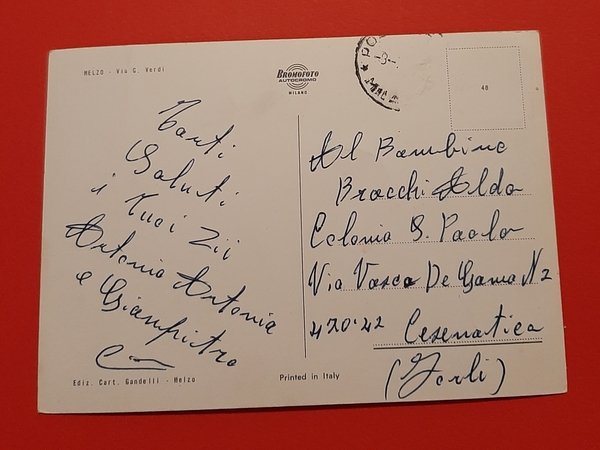 MELZO - Via G. Verdi
BROMOFOTO
AUTOCROMO
MILANO
48
Tanti
Saluti
i Tuoi Zii
Antonio Antonia
e Gianpietro
Al Bambino
Bracchi Aldo
Colonia S. Paolo
Via Vasco De Gama N 2
470·42 Cesenatico
(Forlì)
Ediz. Cart. Gandelli - Melzo
Printed in Italy